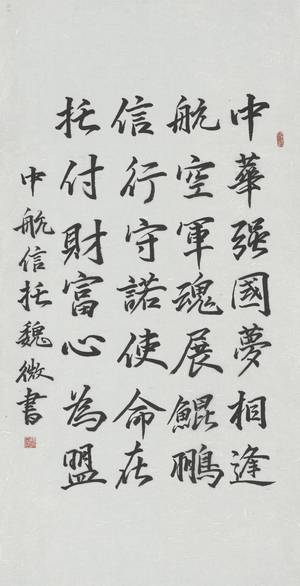 中華強國夢相逢
航空軍魂展鯤鵬
信行守諾使命在
托付財富心為盟
中航信托魏微書